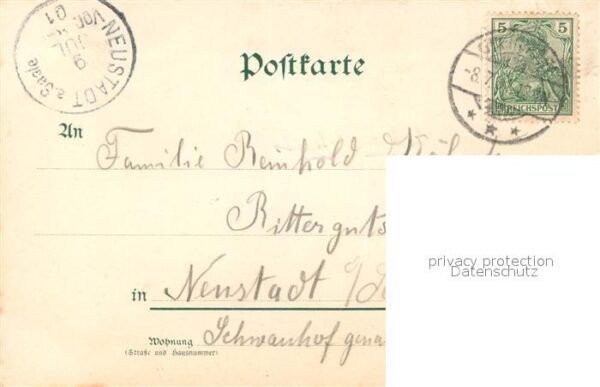 NEUSTADT a. Saale
9 JUL
Vor
01
5 5
REICHSPOST
Postkarte
An
Familie Reinhold
Ritterguts
in Neustadt
Wohnung
(Straße und Hausnummer)
Schwanhof genan
privacy protection
Datenschutz